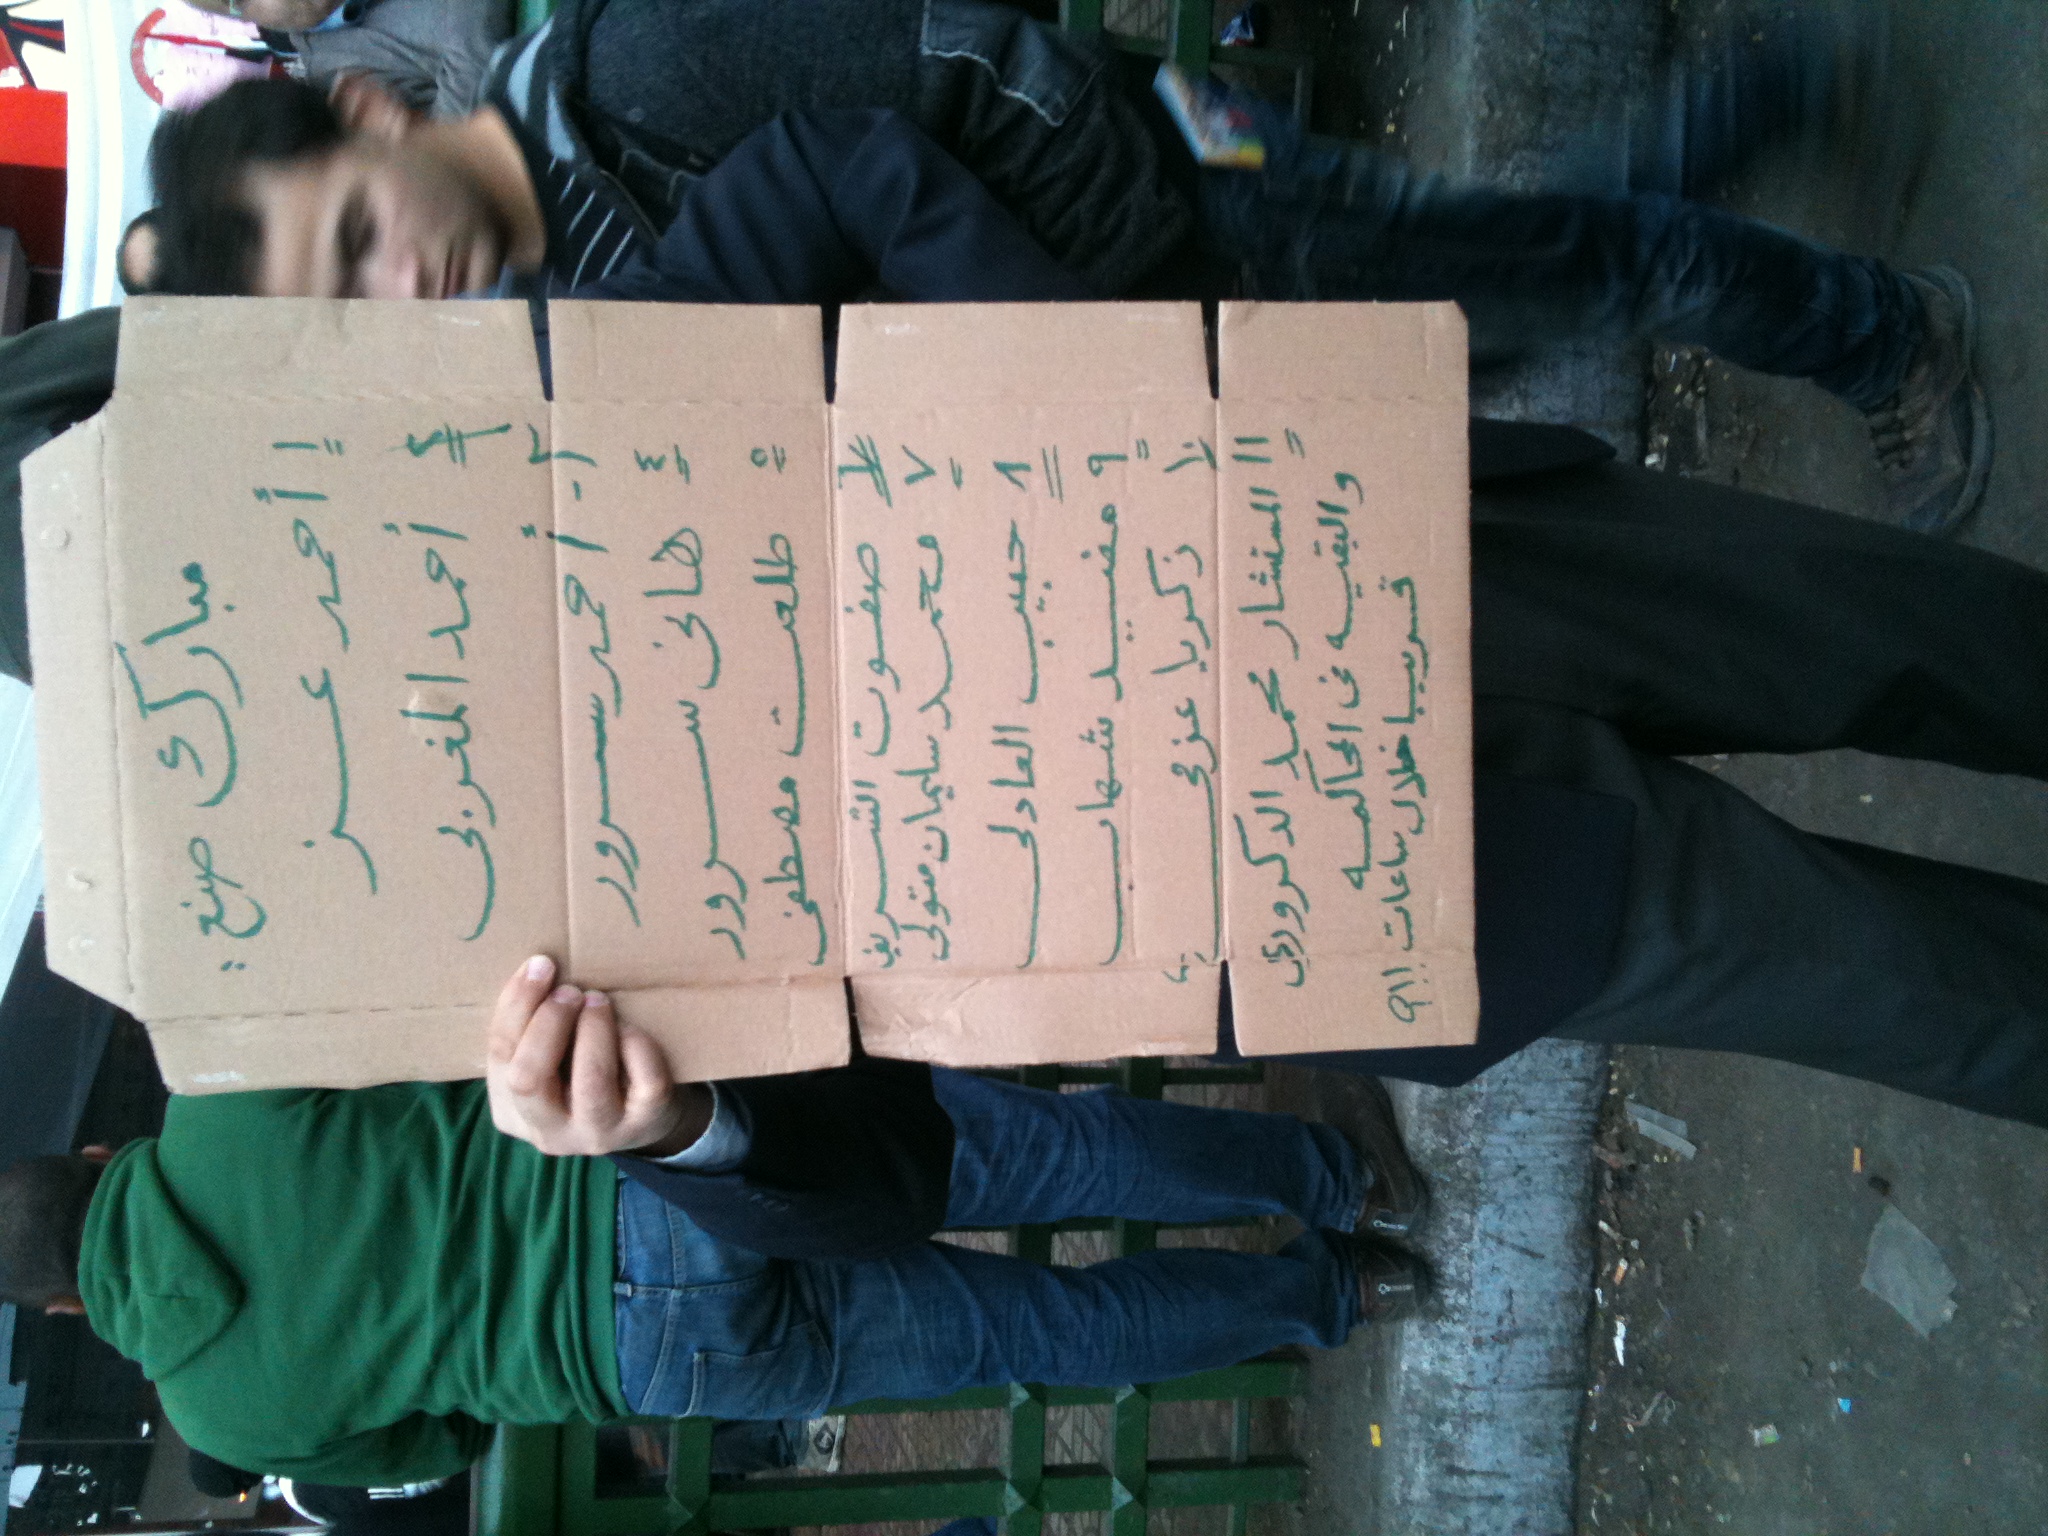 مبارك صنع :
١ أحمد عز
٢ أحمد المغربى
٣- أحمد سرور
٤ هانى سرور
٥ طلعت مصطفى
٦ صفوت الشريف
٧ محمد سليمان متولى
٨ حبيب العادلى
٩ مفيد شهاب
١٠ زكريا عزمى
١١ المستشار محمد الدكرورى
والبقيه فى المحاكمه
قريبا خلال ساعات